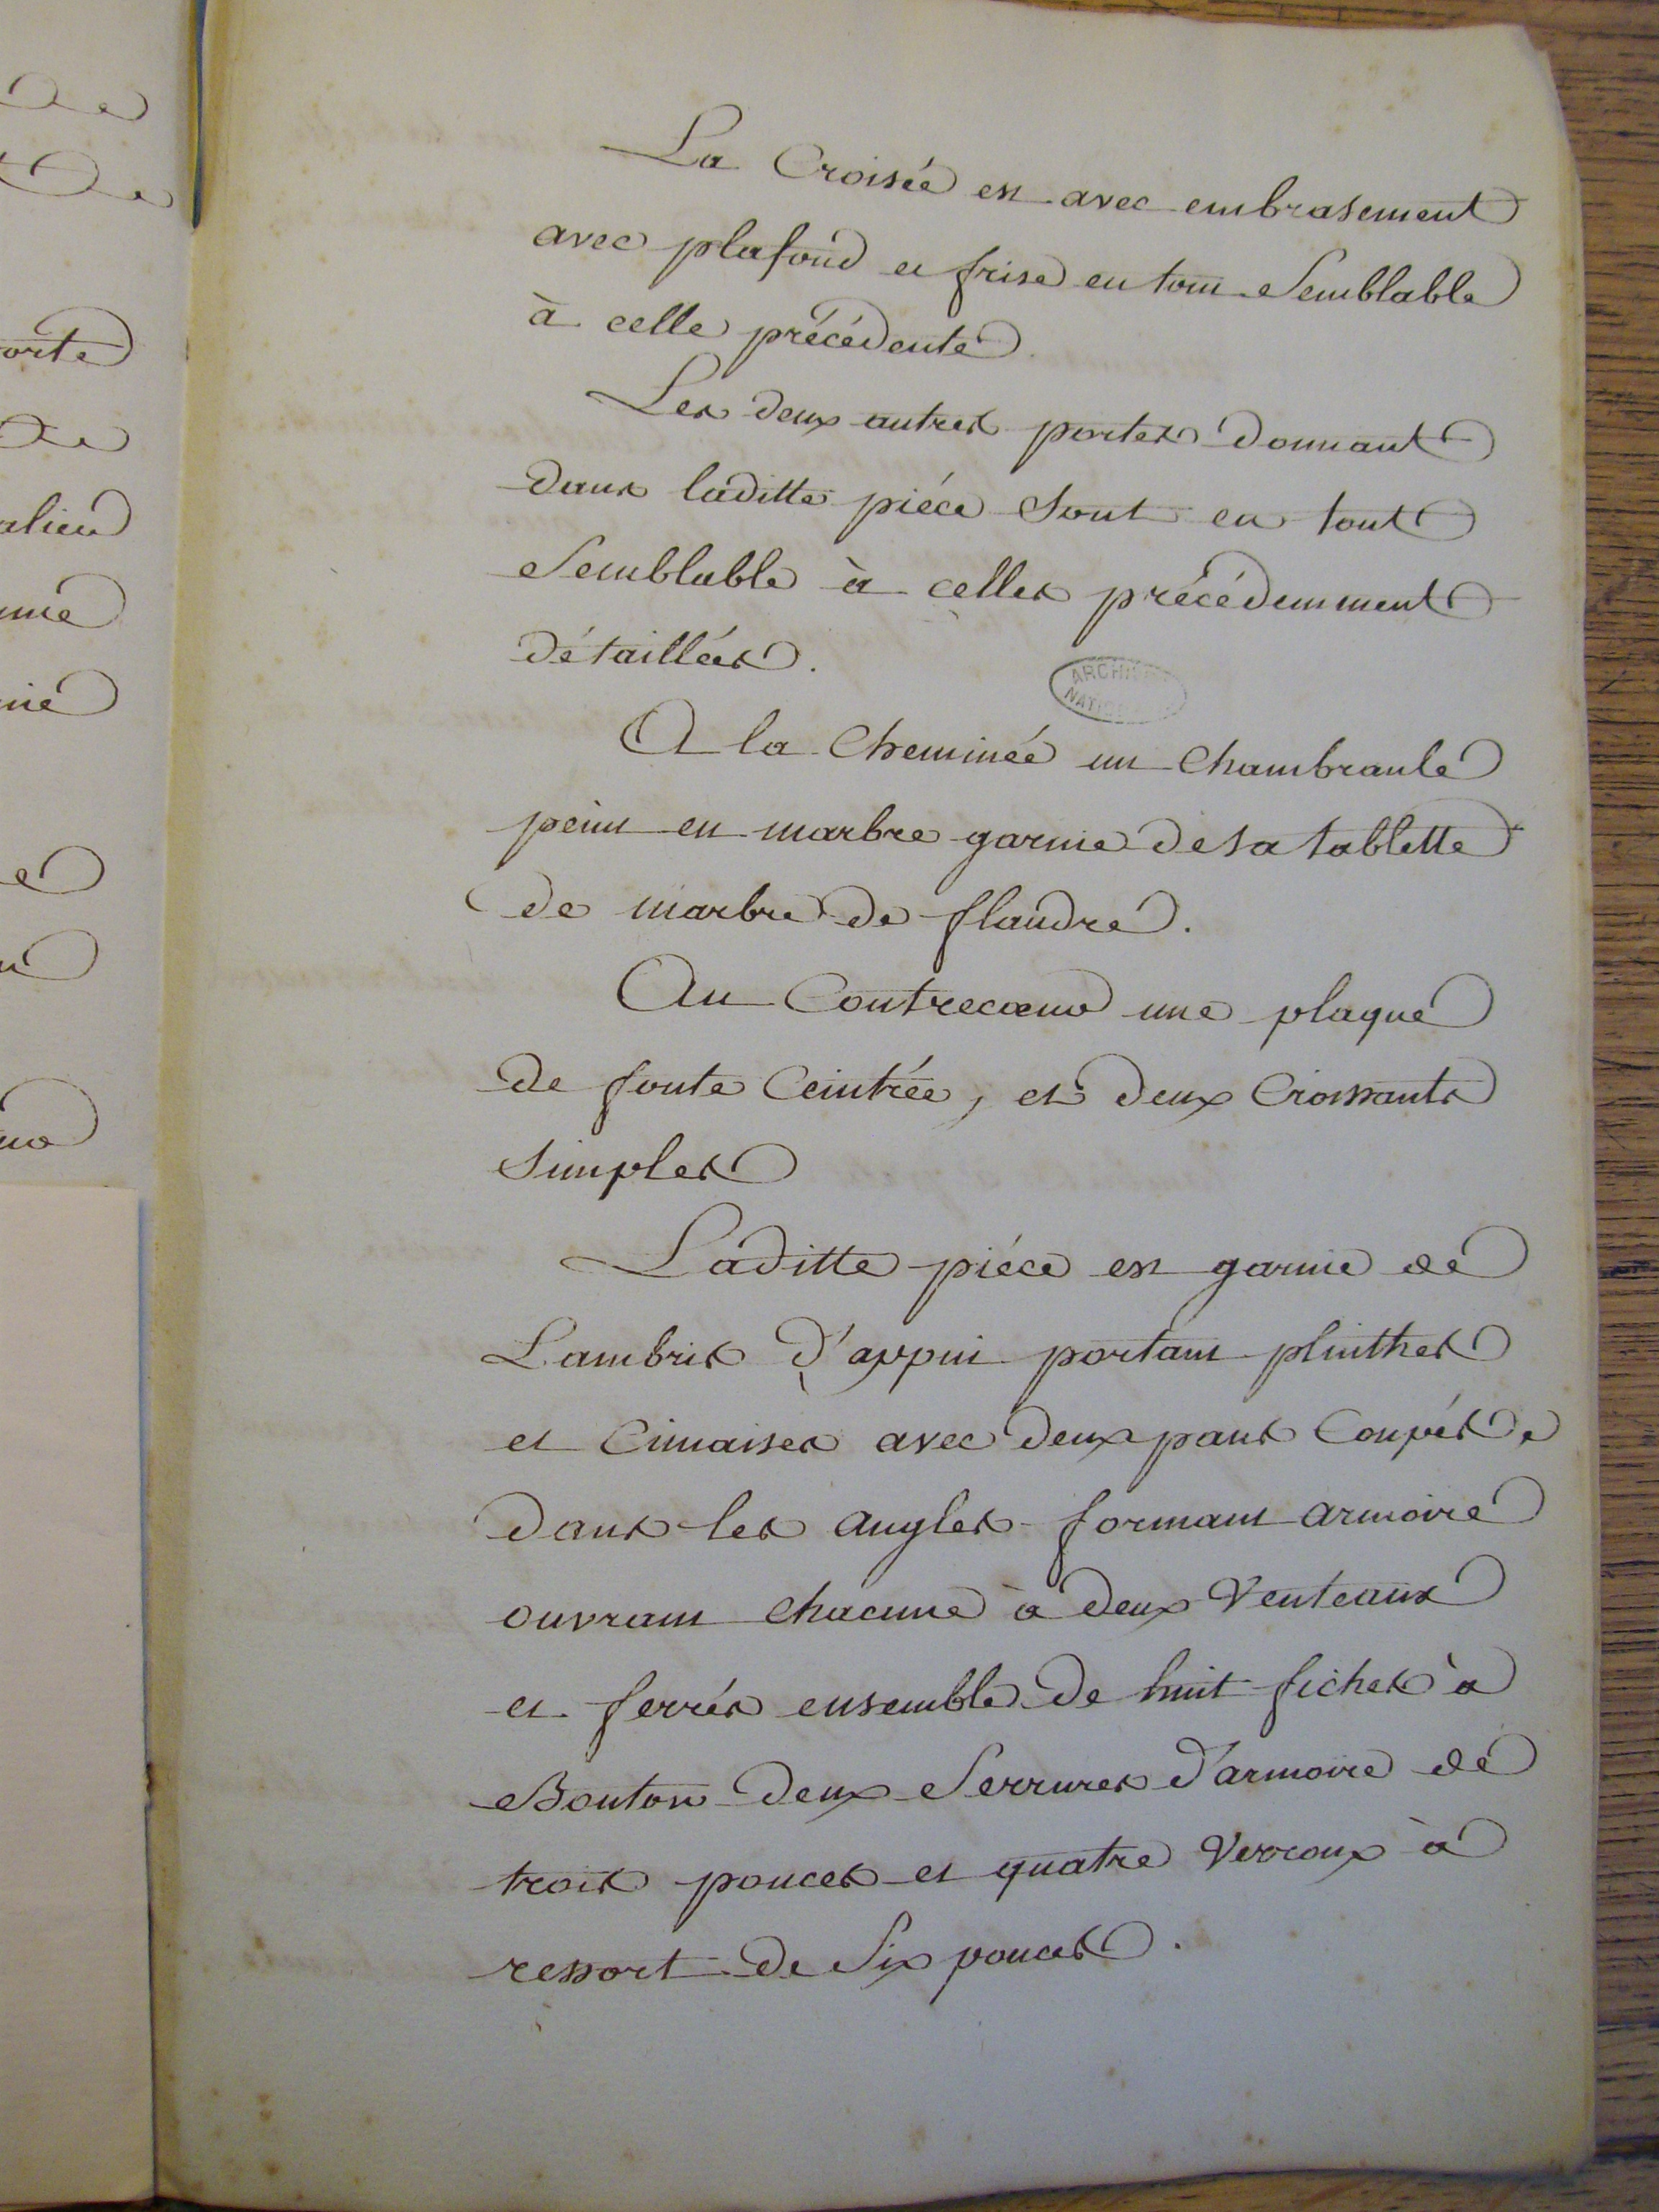 De
De
orte
De
alieu
une
nie
La Croisée est avec embrasement
avec plafond et frise en tout Semblable
à celle précédente
Les deux autres portes donnant
dans laditte piéce sont en tout
Semblable à celles précédemment
détaillées.
ARCHIVES
NATIONALES
A la Cheminée un Chambranle
peint en marbre garnie de sa tablette
de marbre de flandre.
Au Contrecœur une plaque
de fonte Ceintrée, et deux Croissants
simples
Laditte piéce est garnie de
Lambris d'appui portant plinthes
et Cimaises avec deux pans Coupés de
dans les angles formant armoire
ouvrant Chacune à deux Venteaux
et ferrés ensemble de huit fiches à
Bouton deux Serrures d'armoire de
trois pouces et quatre Verroux à
ressort de Six pouces.